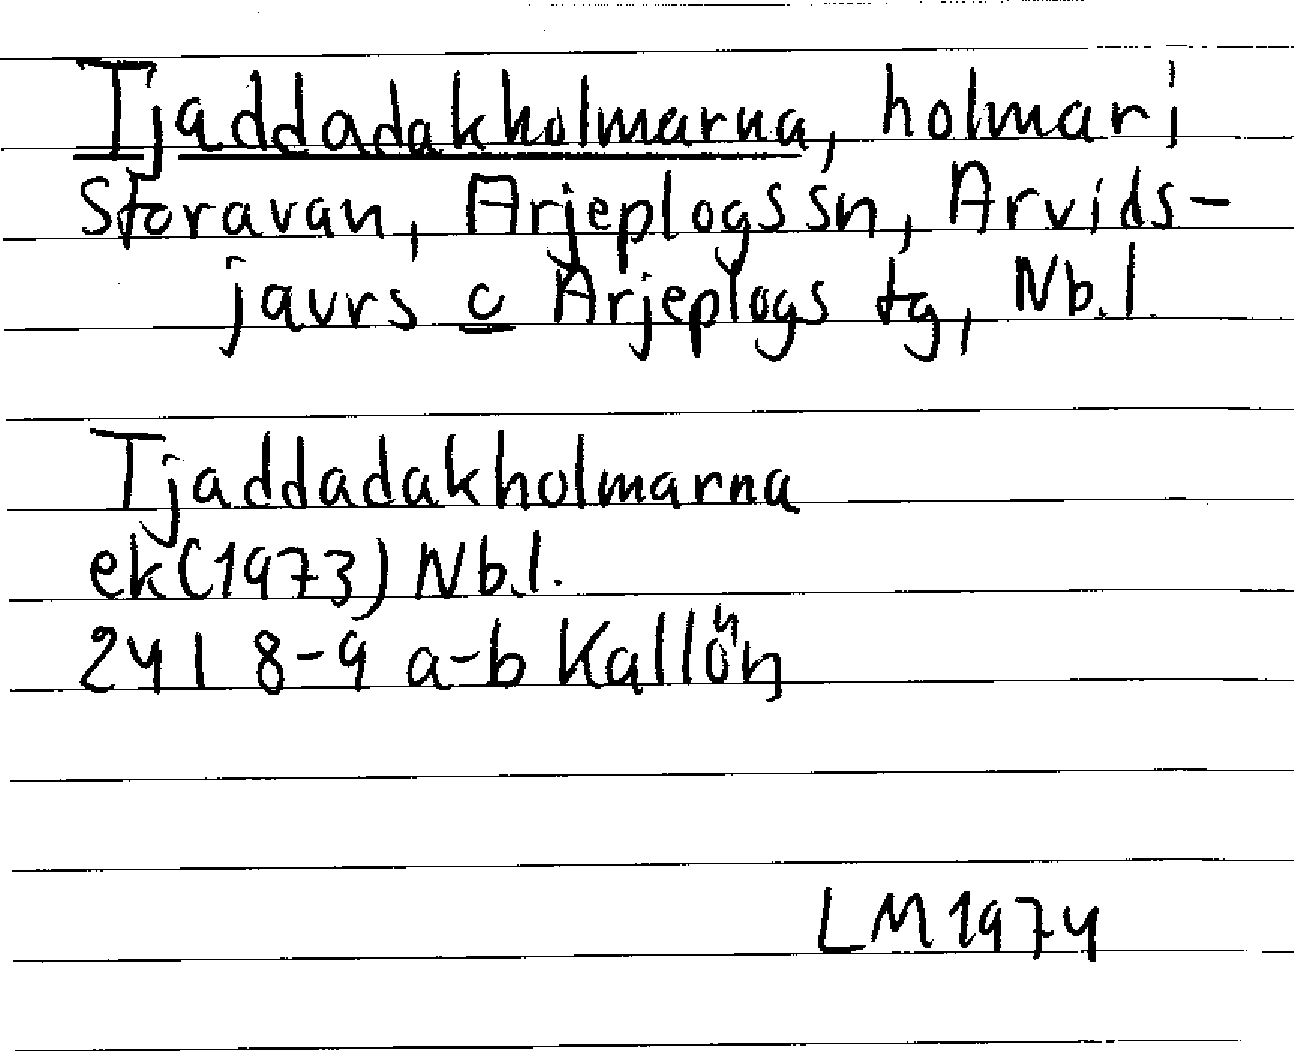 Tjaddadakholmarna, holmar i
Storavan, Arjeplogs sn, Arvids-
jaurs o Arjeplogs tg, Nb.l.
Tjaddadakholmarna
ek (1973) Nb.l.
24 I 8-9 a-b Kallön
LM 1974